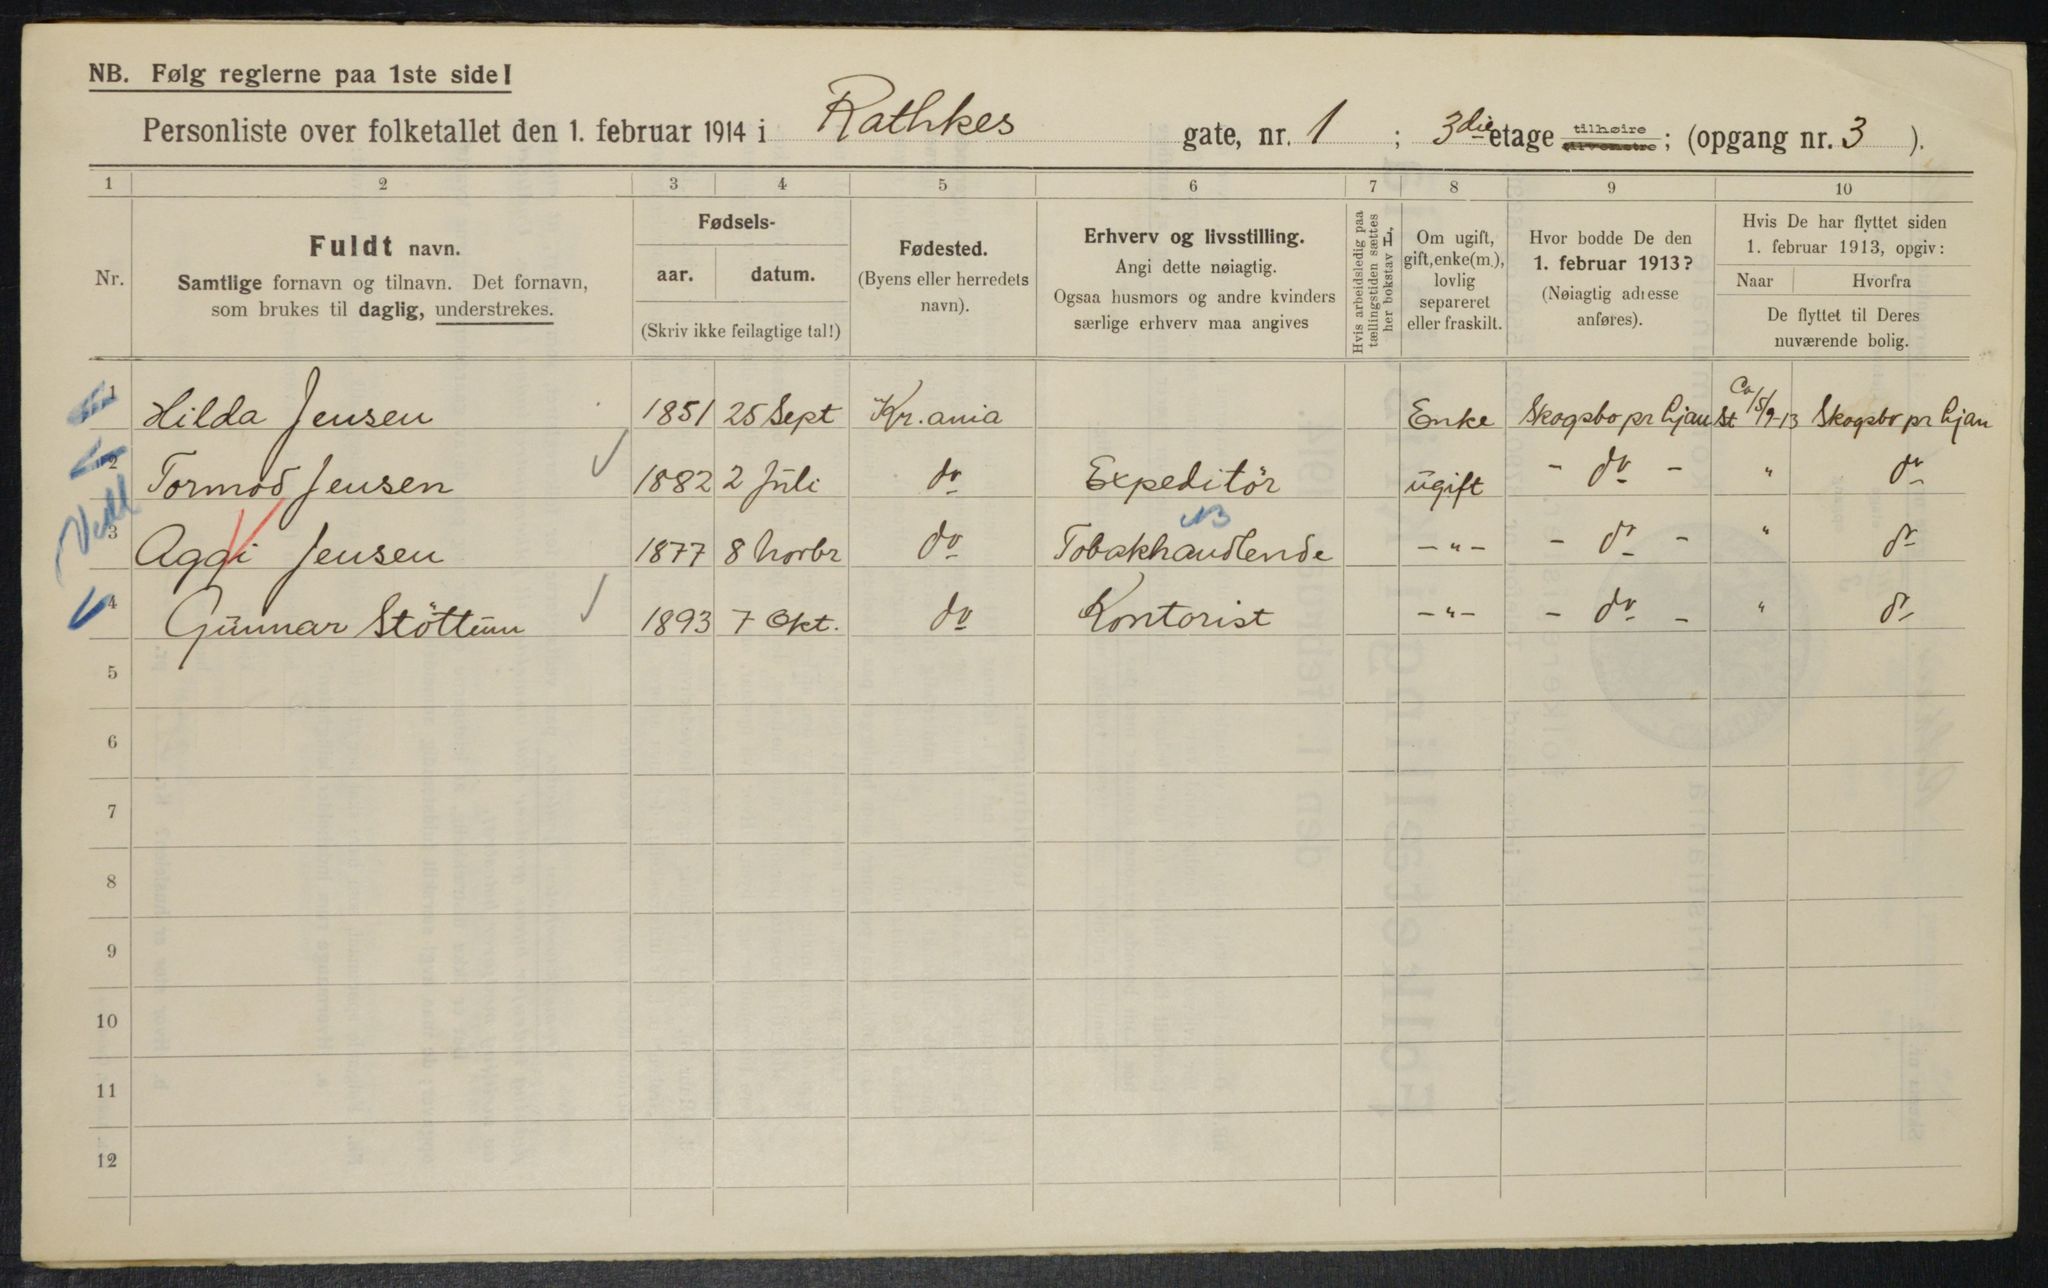 NB. Følg reglerne paa 1ste side!
Personliste over folketallet den 1. februar 1914 i Rathkes gate, nr. 1 ; 3die etage tilhøire ; (opgang nr. 3 ).
1 2 3 4 5 6 7 8 9 10
Nr.
Fuldt navn.
Samtlige fornavn og tilnavn. Det fornavn,
som brukes til daglig, understrekes.
Fødsels-
aar. datum.
(Skriv ikke feilagtige tal!)
Fødested.
(Byens eller herredets
navn).
Erhverv og livsstilling.
Angi dette nøiagtig.
Ogsaa husmors og andre kvinders
særlige erhverv maa angives
Hvis arbeidsledig paa
tællingstiden sættes
her bokstav L.
Om ugift,
gift, enke(m.),
lovlig
separeret
eller fraskilt.
Hvor bodde De den
1. februar 1913?
(Nøiagtig adresse
anføres).
Hvis De har flyttet siden
1. februar 1913, opgiv:
Naar Hvorfra
De flyttet til Deres
nuværende bolig.
1 Hilda Jensen 1851 25 Sept Kr.ania Enke Skogsbo pr Ljan St Ca 15/9-13 Skogsbo pr Ljan
2 Tormod Jensen 1882 2 Juli do Expeditör ugift - do - " do
NB
3 Aggi Jensen 1877 8 Novbr do Tobakhandlende - " - - do - " do
4 Gunnar Stöttum 1893 7 Okt. do Kontorist - " - - do - " do
5
6
7
8
9
10
11
12